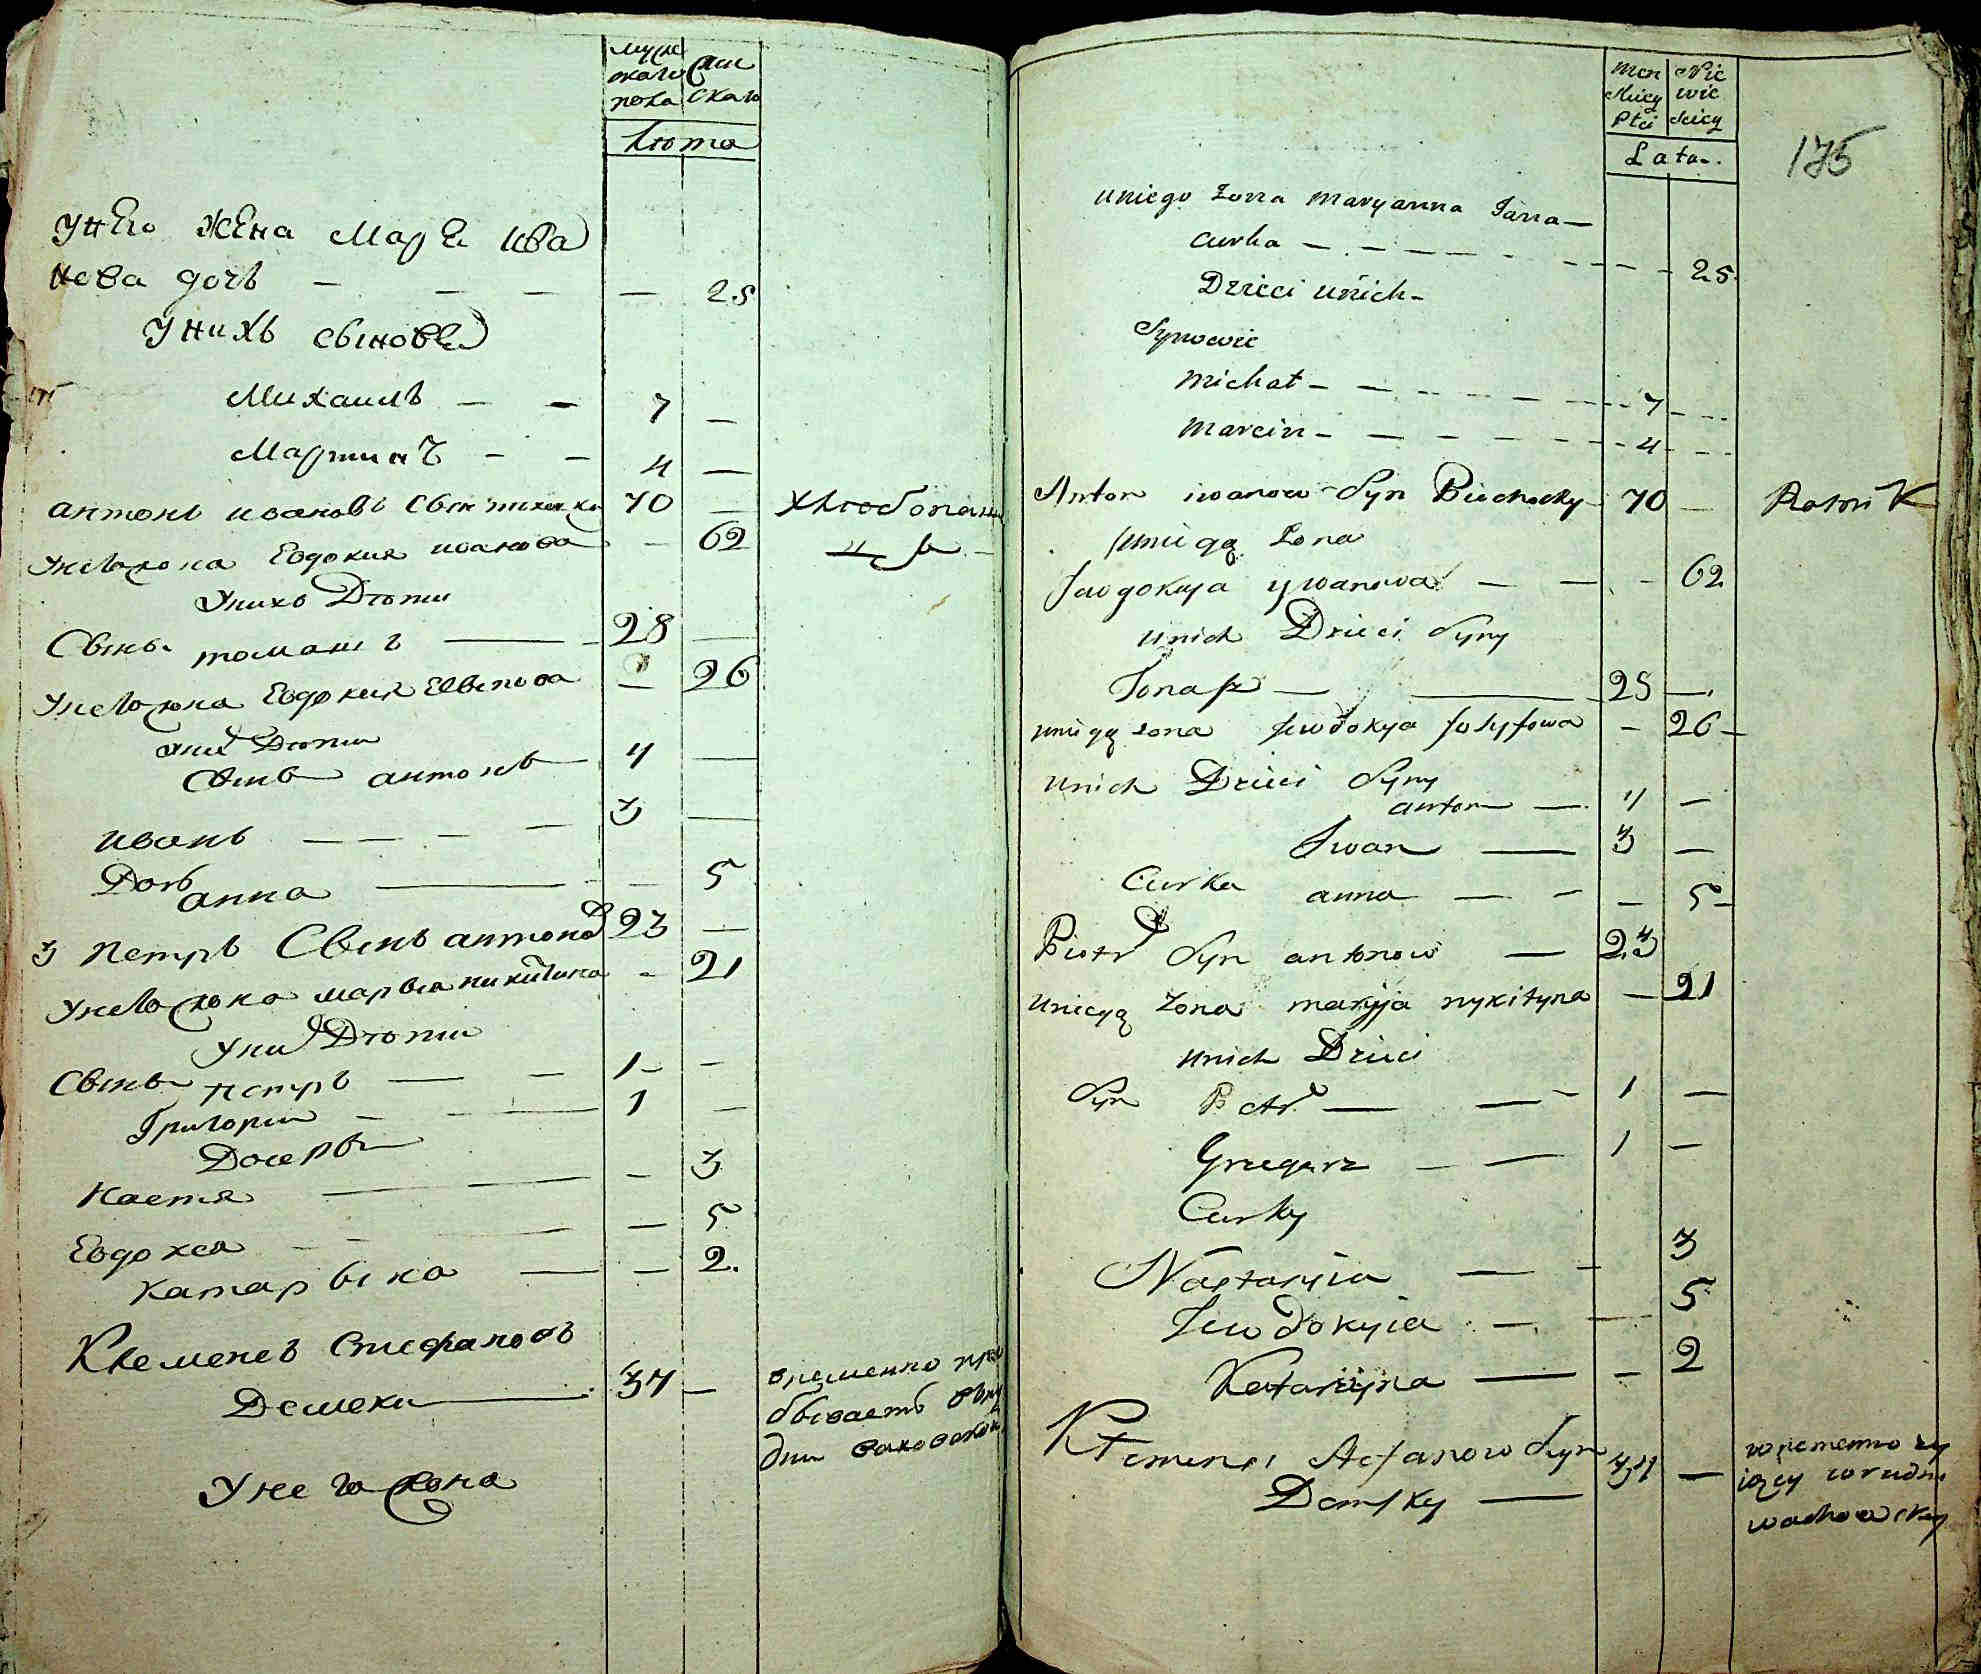 муж жен
скаго скаго
пола
Лѣта
У него жена Марья Ива
нова дочь — — — — 25
У нихъ сыновья
Михаилъ — — 7 —
Мартинъ — — 4 —
антонъ ивановъ сынъ 70 — хлебопаш
У него жена Евдокия иванова — 62
У нихъ Дѣти
Сынъ томашъ — 28 —
У него жена Евдокия — 26
У них Дѣти
Сынъ антонъ 4 —
иванъ — — — — 3 —
Дочь анна — — 5
3 Петръ Сынъ антонов 23 —
У него жена марья никитина - 21
У них Дѣти
Сынъ петръ — — 1 - -
Григории — — 1 —
Дочери
Настя — — - 3
Евдокея — — — 5
Катарына — — 2.
Клеменсъ Стефановъ
Демски — 37 — временно пре
бываетъ вру
дни ваховской
У него жена
men Nie
skiey wie
Płci skiey
Lata.
175
uniego żona maryanna Jana —
curka — - — - — - - - - - 25.
Dzieci unich -
Synowie
michał - — - - - - - 7 - - -
marcin - — - - - - - 4 - - -
Anton iwanow Syn Piechocky 70 — Rolnik
uniegą żona
Jewgokyja ywanowa — — - 62
unich Dzieci Syny
Tomasz — — 28 —.
uniegą żona Jewdokya Josyfowa - 26 -
unich Dzieci Syny
anton — 4 —
Iwan — 3 —
Curka anna — — - — 5 -
Piotr Syn antonow — 23
uniegą żona maryja nykityna — 21
unich Dzieci
Syn Petr — — - 1 —
Grzegorz — — 1 —
Curky
Nastazyia — - 3
Jewdokyia — — 5
Katarzyna — — 2
Klemens Stefanow Syn 34 — wremenno zy
Demsky — iący wrudni
wachowskey